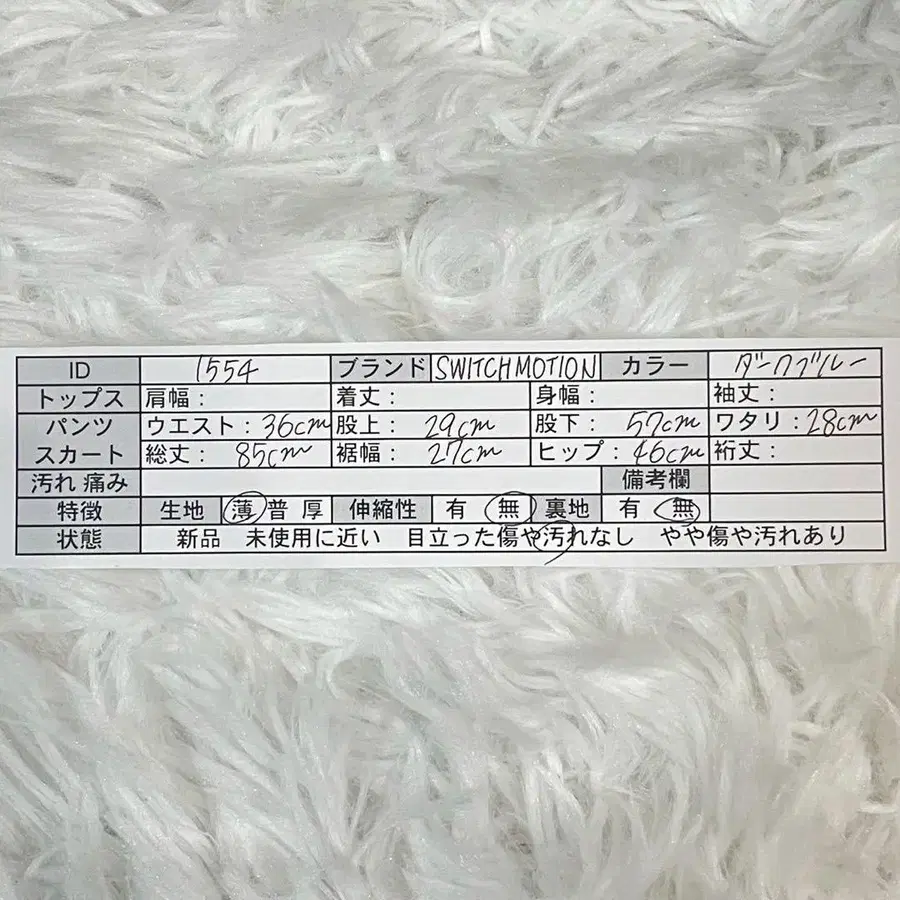 ID 1554 ブランド SWITCH MOTION カラー ダークブルー
トップス 肩幅: 着丈: 身幅: 袖丈:
パンツ ウエスト:36cm 股上: 29cm 股下: 57cm ワタリ:28cm
スカート 総丈: 85cm 裾幅: 27cm ヒップ:46cm 裄丈:
汚れ 痛み 備考欄
特徴 生地 薄 普 厚 伸縮性 有 無 裏地 有 無
状態 新品 未使用に近い 目立った傷や汚れなし やや傷や汚れあり